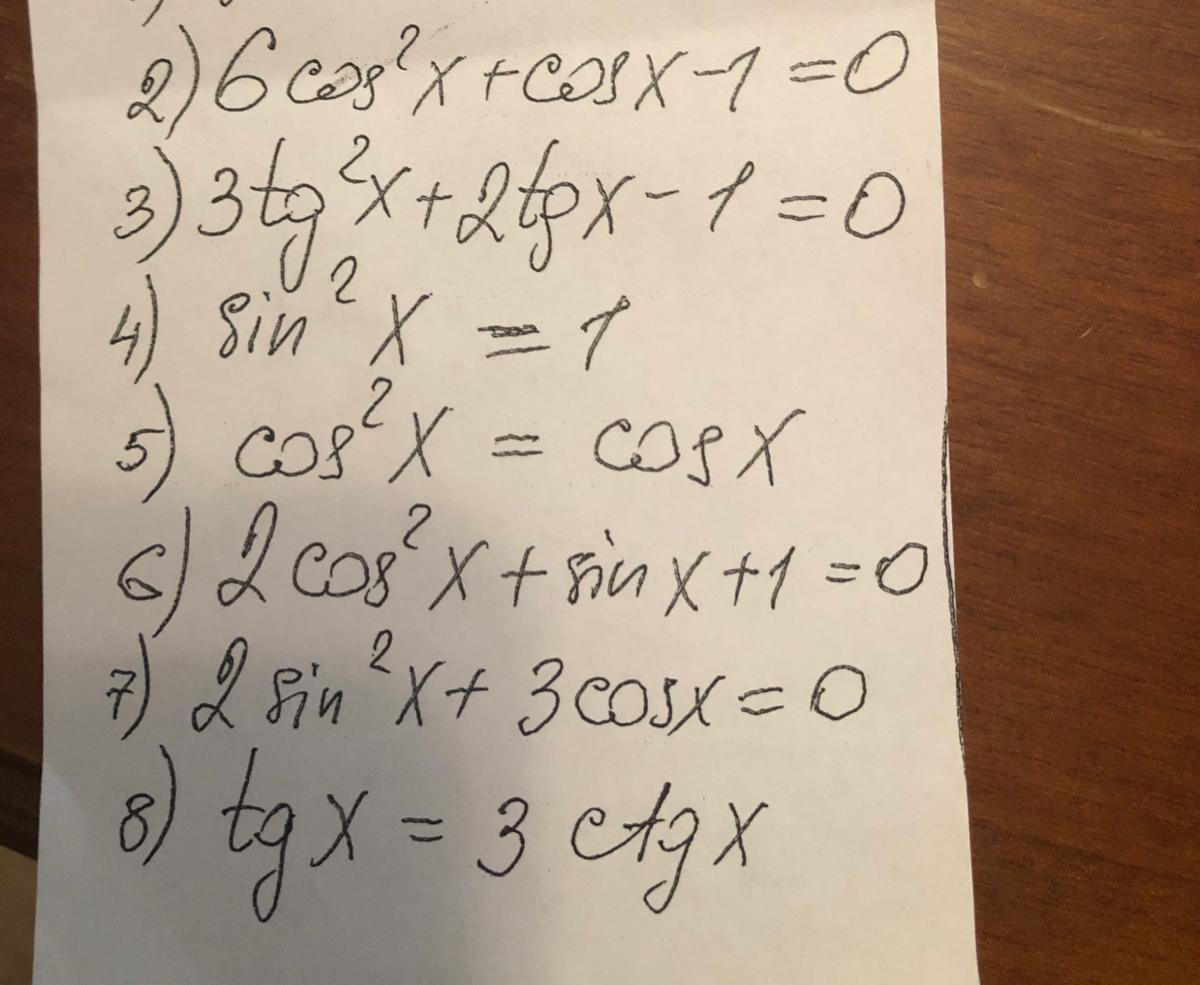 2) 6 cos²x + cosx - 1 = 0
3) 3tg²x + 2tgx - 1 = 0
4) sin²x = 1
5) cos²x = cosx
6) 2cos²x + sinx + 1 = 0
7) 2 sin²x + 3cosx = 0
8) tgx = 3 ctgx